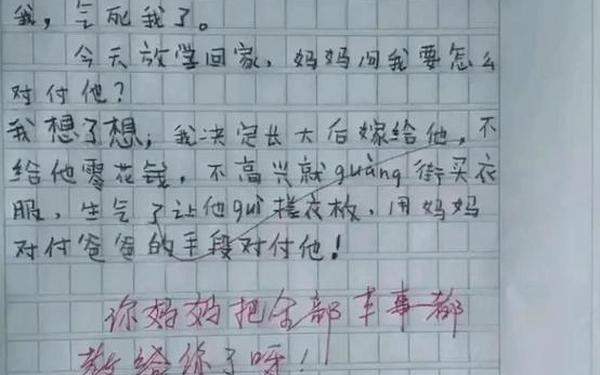 我,气死我了。
今天放学回家,妈妈问我要怎么
对付他?
我想了想,我决定长大后嫁给他,不
给他零花钱,不高兴就guàng街买衣
服,生气了让他guì搓衣板,用妈妈
对付爸爸的手段对付他!
你妈妈把全部本事都
教给你了呀!